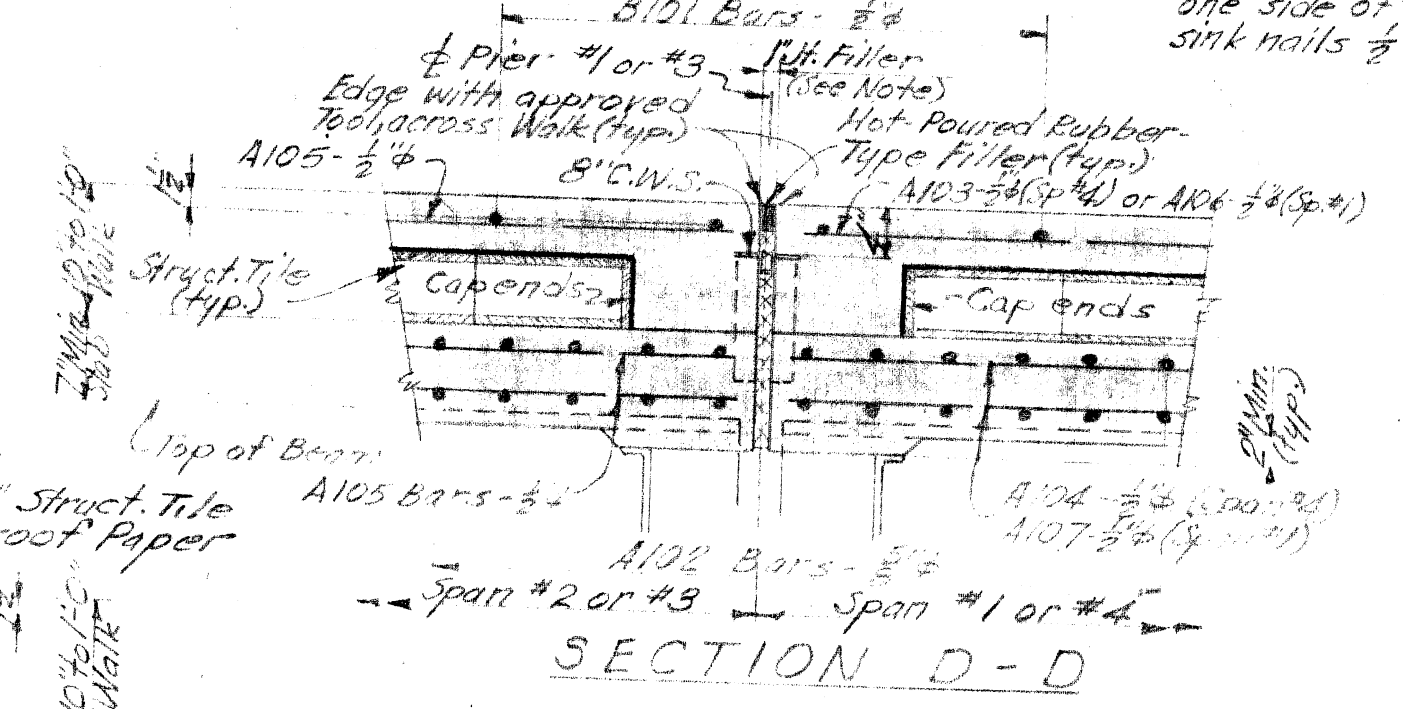 B101 Bars - ½"φ
one side of
sink nails ½
℄ Pier #1 or #3
1" Jt. Filler
(See Note)
Edge with approved
Tool, across Walk (typ.)
Hot-Poured Rubber-
Type Filler (typ.)
A105 - ½"φ
8" C.W.S.
A103-½"φ (Sp.#4) or A106-½"φ (Sp.#1)
1½"
Struct. Tile
(typ.)
Cap ends
Cap ends
7" Min.
Slab
Walk
2" Min.
(typ.)
Top of Beam
A105 Bars - ½"φ
A104 - ½"φ (Span #4)
A107 - ½"φ (Span #1)
" Struct. Tile
roof Paper
A102 Bars - ⅝"φ
Span #2 or #3
Span #1 or #4
10" to 1'-0"
Walk
SECTION D-D